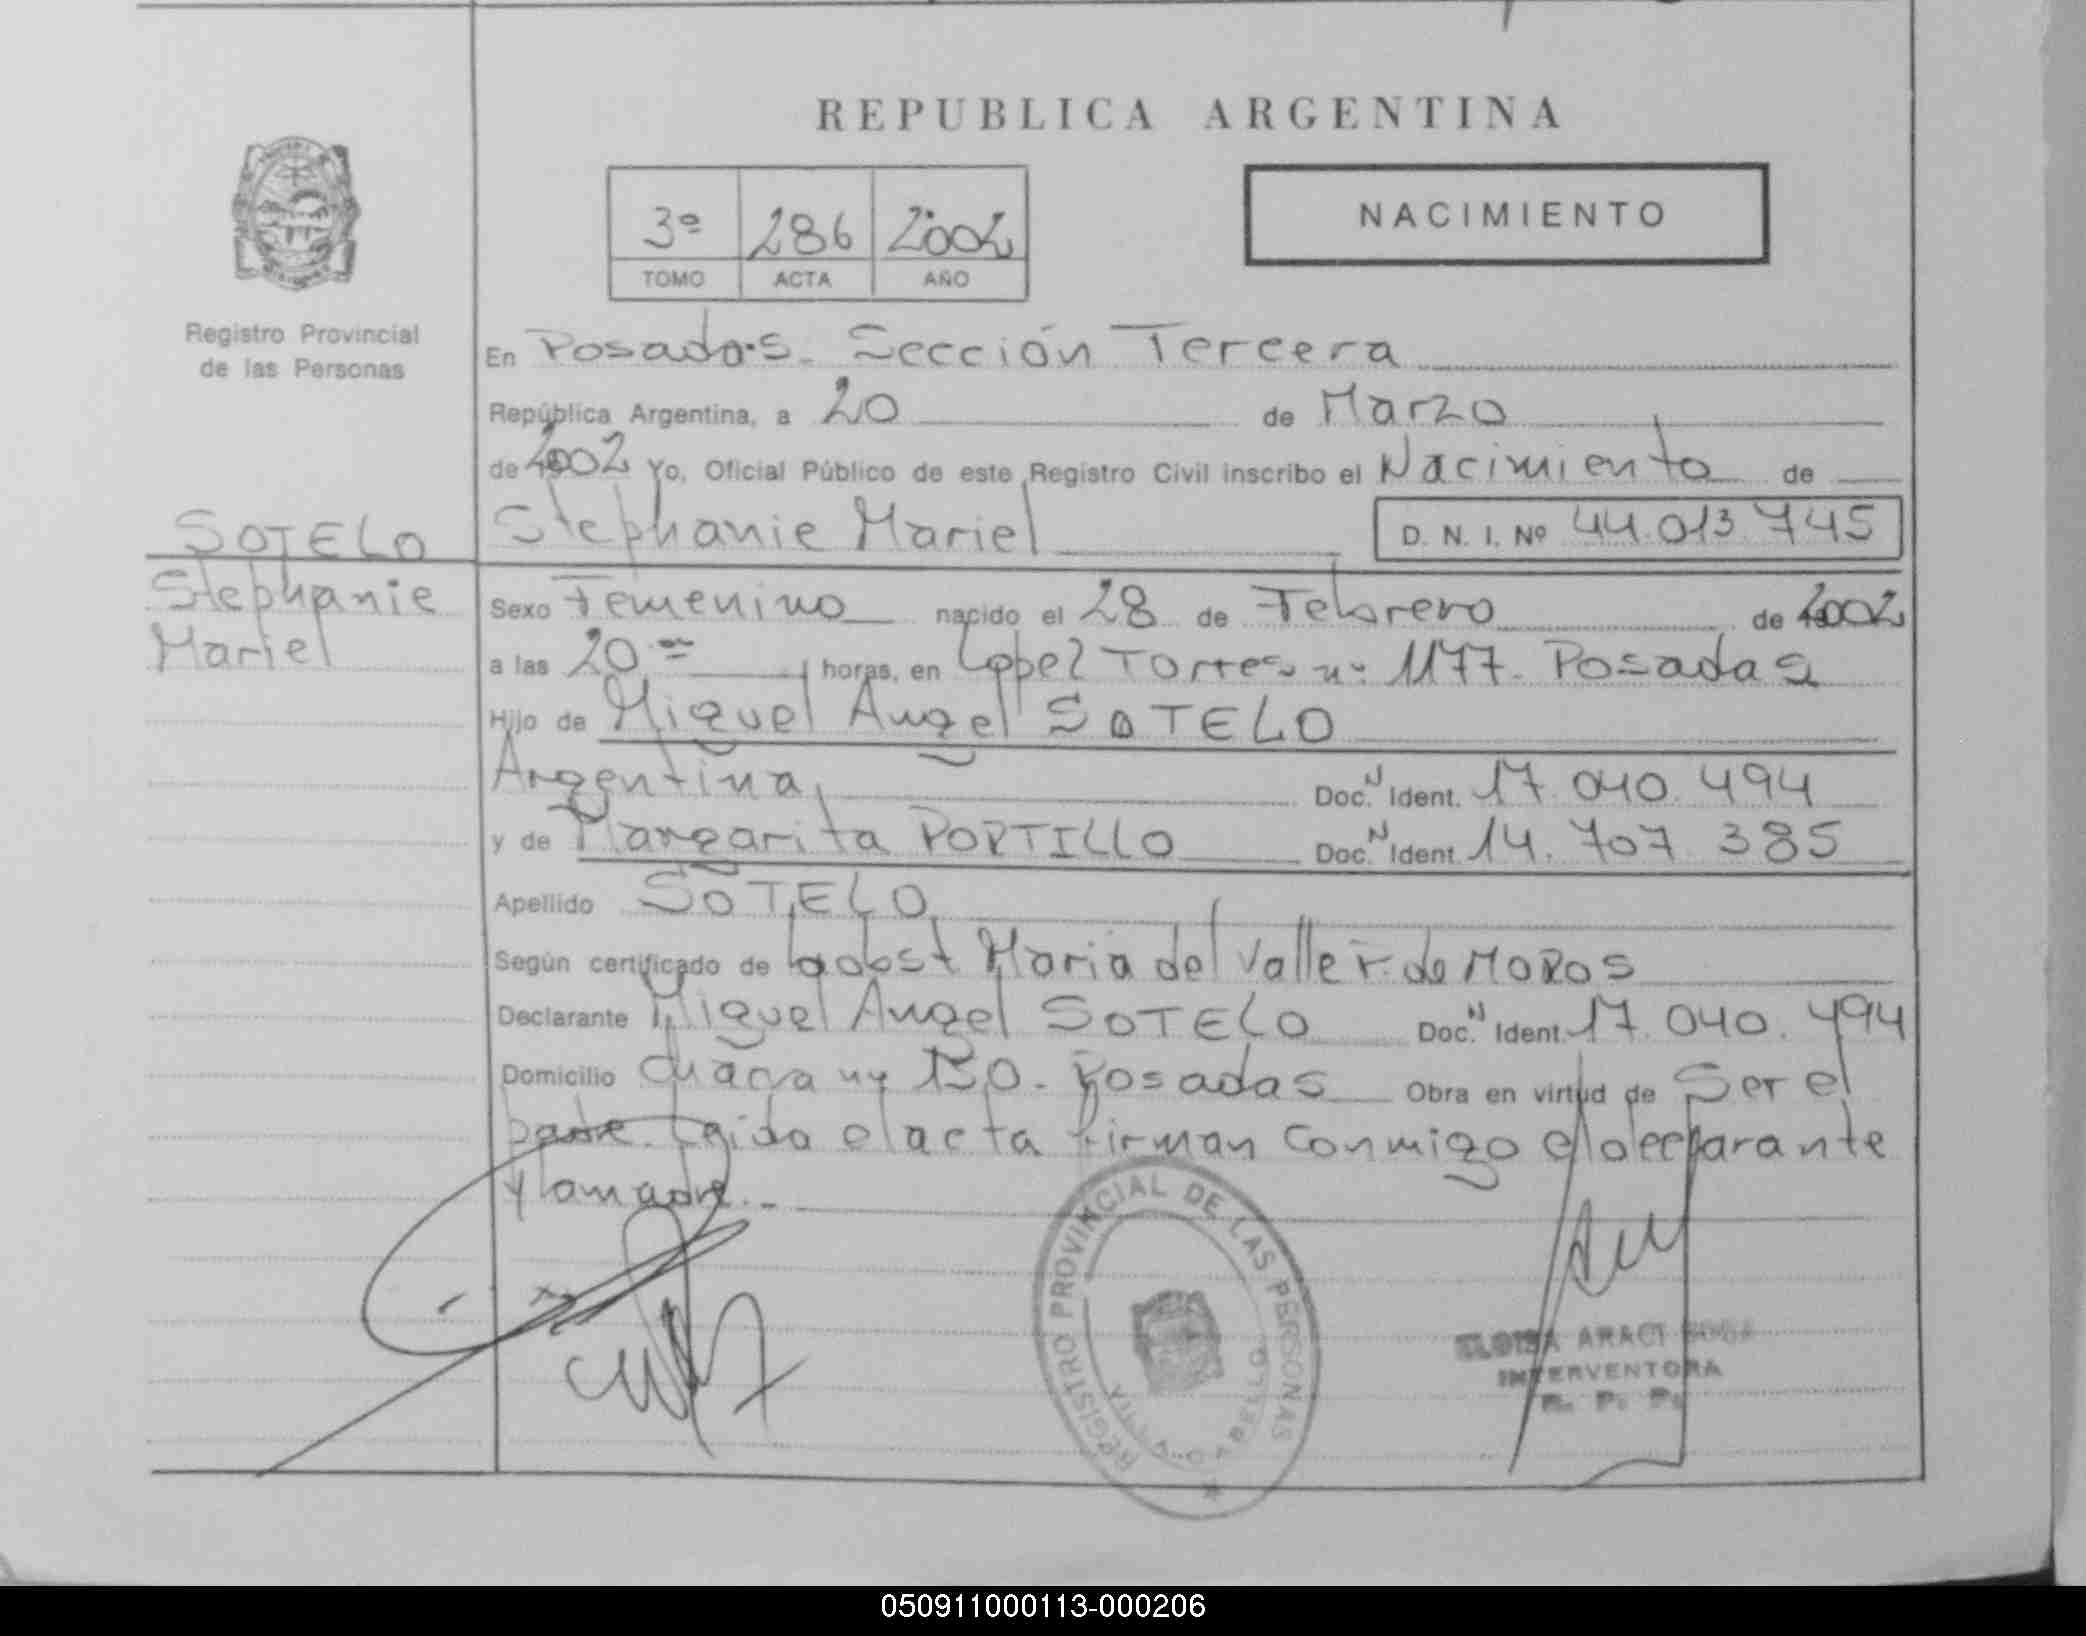 REPUBLICA ARGENTINA
3º 286 2002
TOMO ACTA AÑO
NACIMIENTO
Registro Provincial
de las Personas
En Posadas. Sección Tercera
República Argentina, a 20 de Marzo
de 2002 Yo, Oficial Público de este Registro Civil inscribo el Nacimiento de
SOTELO
Stephanie
Mariel
Stephanie Mariel D. N. I. Nº 44.013.745
Sexo Femenino nacido el 28 de Febrero de 2002
a las 20 horas, en Torres nº 1177. Posadas
Hijo de Miguel Angel SOTELO
Argentina Doc. N Ident. 17.040.494
y de Margarita PORTILLO Doc. N Ident. 14.707.385
Apellido SOTELO
Según certificado de María del Valle F. de MOROS
Declarante Miguel Angel SOTELO Doc. N Ident. 17.040.494
Domicilio Posadas Obra en virtud de Ser el
padre. Leida el acta firman conmigo el declarante
y la madre.-
REGISTRO PROVINCIAL DE LAS PERSONAS
ELOISA ARACI SOSA
INTERVENTORA
R. P. P.
050911000113-000206